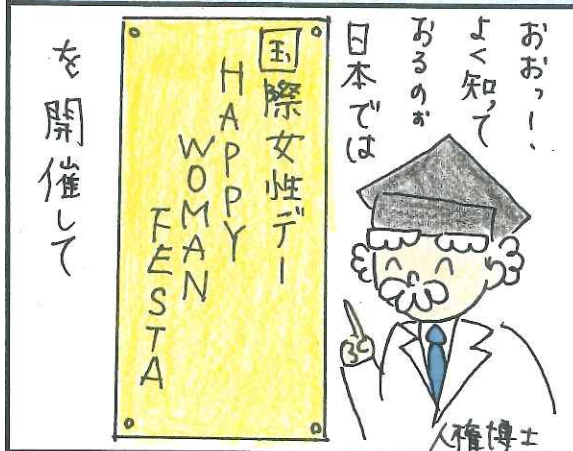 おおっ!
よく知って
おるのぉ
日本では
国際女性デー
HAPPY
WOMAN
FESTA
を開催して
人権博士